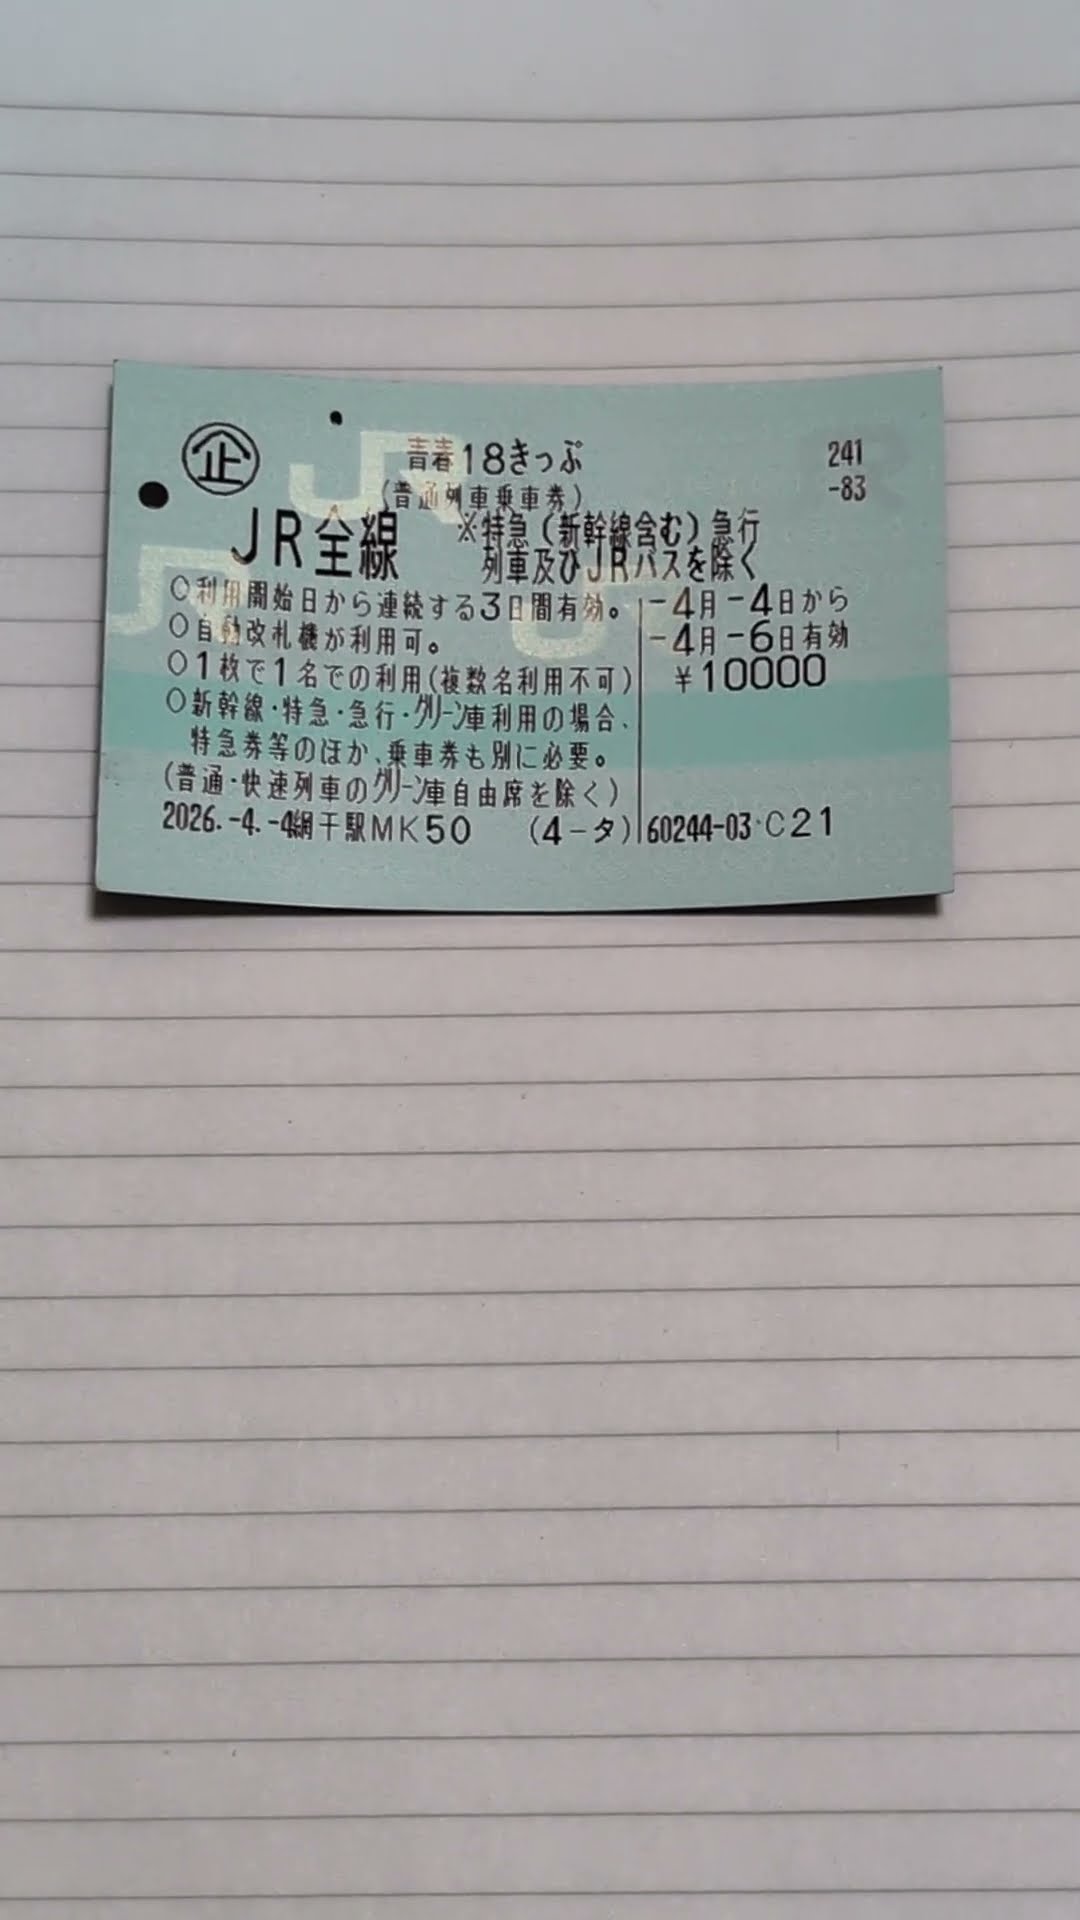 企 青春18きっぷ 241
(普通列車乗車券) -83
JR全線 ※特急(新幹線含む)急行
列車及びJRバスを除く
○利用開始日から連続する3日間有効。 -4月-4日から
○自動改札機が利用可。 -4月-6日有効
○1枚で1名での利用(複数名利用不可) ¥10000
○新幹線・特急・急行・グリーン車利用の場合、
特急券等のほか、乗車券も別に必要。
(普通・快速列車のグリーン車自由席を除く)
2026.-4.-4網干駅MK50 (4-タ) 60244-03 C21